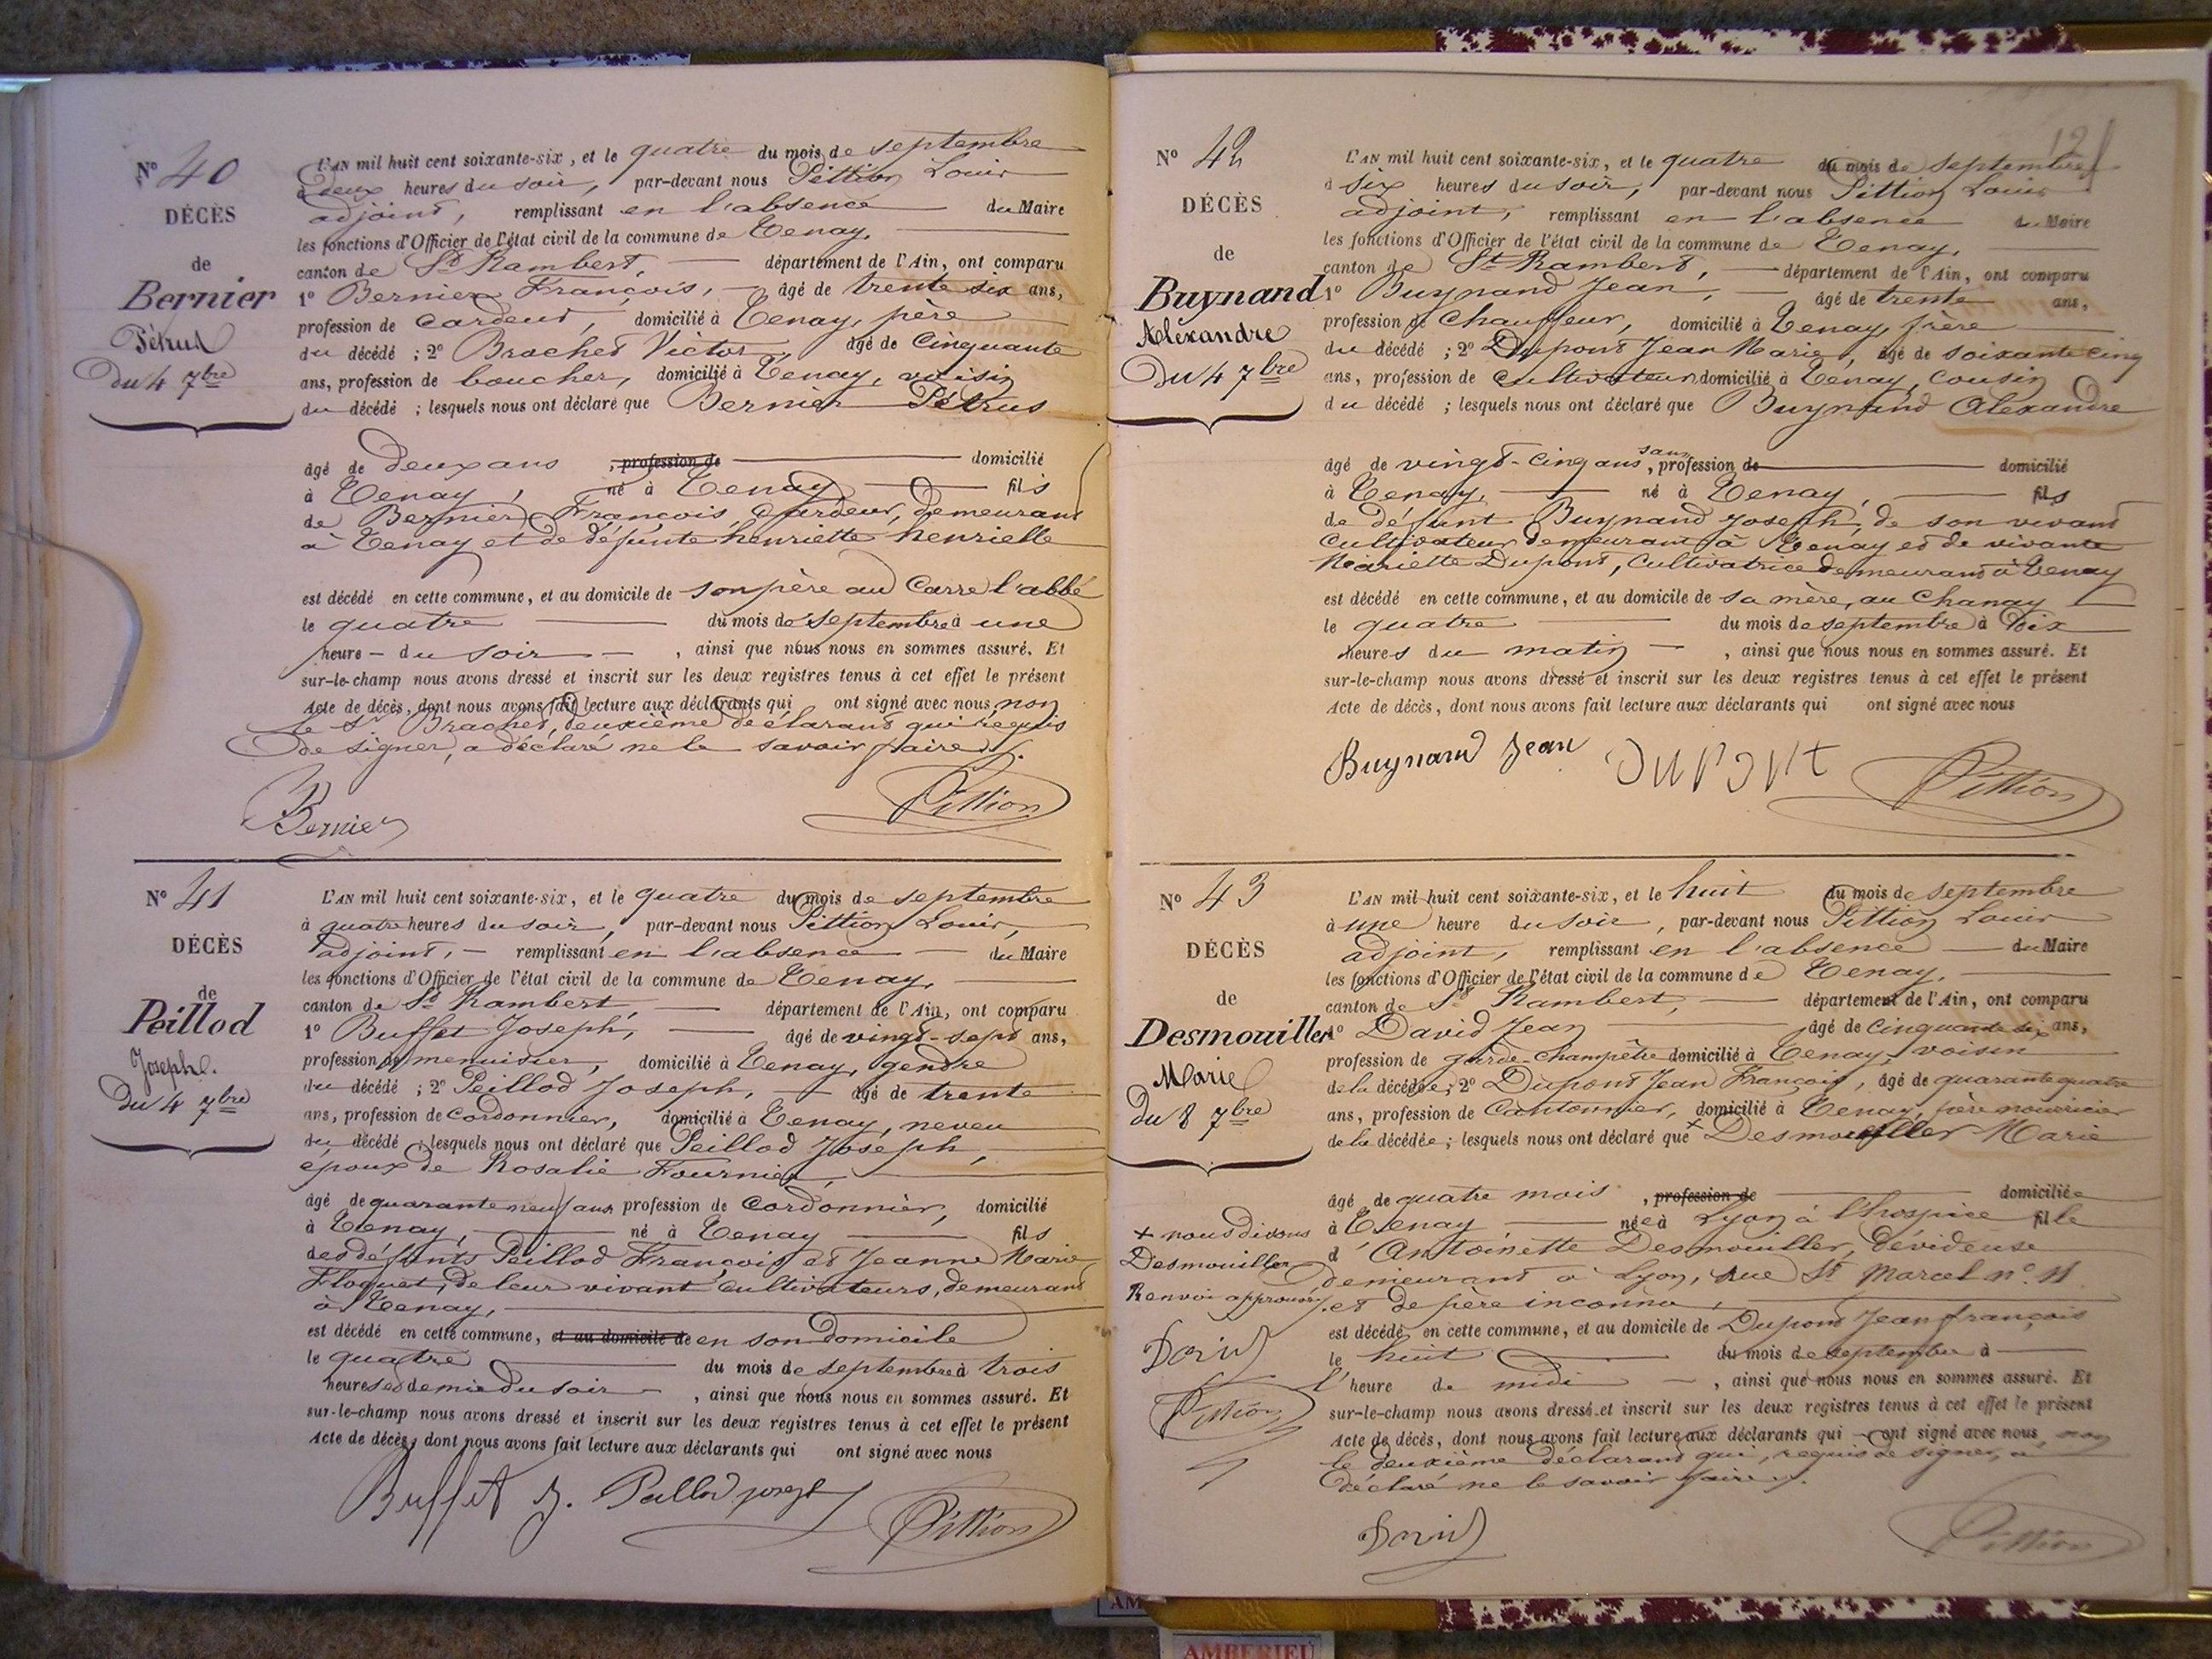 N° 40
DÉCÈS
de
Bernier
Pétrus
Du 4 7bre
L'AN mil huit cent soixante-six, et le quatre du mois de septembre
à deux heures du soir, par-devant nous Pittion Louis
adjoint, remplissant en l'absence du Maire
les fonctions d'Officier de l'état civil de la commune de Tenay,
canton de St Rambert, département de l'Ain, ont comparu
1° Bernier François, âgé de trente six ans,
profession de cardeur, domicilié à Tenay, père
du décédé ; 2° Brachet Victor, âgé de Cinquante
ans, profession de boucher, domicilié à Tenay, voisin
du décédé ; lesquels nous ont déclaré que Bernier Pétrus
âgé de deux ans , profession de domicilié
à Tenay, né à Tenay fils
de Bernier François, Cardeur, demeurant
à Tenay et de défunte henriette henriette
est décédé en cette commune, et au domicile de son père au Carre l'abbé
le quatre du mois de septembre à une
heure du soir , ainsi que nous nous en sommes assuré. Et
sur-le-champ nous avons dressé et inscrit sur les deux registres tenus à cet effet le présent
Acte de décès, dont nous avons fait lecture aux déclarants qui ont signé avec nous non
le Sr Brachet, deuxième déclarant qui requis
de signer, a déclaré ne le savoir faire.
Bernier Pittion
N° 41
DÉCÈS
de
Peillod
Joseph.
Du 4 7bre
L'AN mil huit cent soixante-six, et le quatre du mois de septembre
à quatre heures du soir, par-devant nous Pittion Louis,
adjoint, remplissant en l'absence du Maire
les fonctions d'Officier de l'état civil de la commune de Tenay,
canton de St Rambert, département de l'Ain, ont comparu
1° Buffet Joseph, âgé de vingt-sept ans,
profession de menuisier, domicilié à Tenay, gendre
du décédé ; 2° Peillod Joseph, âgé de trente
ans, profession de Cordonnier, domicilié à Tenay, neveu
du décédé ; lesquels nous ont déclaré que Peillod Joseph,
époux de Rosalie Fournier,
âgé de quarante neuf ans profession de Cordonnier, domicilié
à Tenay, né à Tenay fils
des défunts Peillod François et Jeanne Marie
Floquet, de leur vivant Cultivateurs, demeurant
à Tenay,
est décédé en cette commune, et au domicile de en son domicile
le quatre du mois de septembre à trois
heures et demie du soir , ainsi que nous nous en sommes assuré. Et
sur-le-champ nous avons dressé et inscrit sur les deux registres tenus à cet effet le présent
Acte de décès, dont nous avons fait lecture aux déclarants qui ont signé avec nous
Buffet J. Peillod joseph Pittion
N° 42
DÉCÈS
de
Buynand
Alexandre
Du 4 7bre
L'AN mil huit cent soixante-six, et le quatre du mois de septembre
à six heures du soir, par-devant nous Pittion Louis
adjoint, remplissant en l'absence du Maire
les fonctions d'Officier de l'état civil de la commune de Tenay,
canton de St Rambert, département de l'Ain, ont comparu
1° Buynand Jean, âgé de trente ans,
profession de Chauffeur, domicilié à Tenay, frère
du décédé ; 2° Dupont Jean Marie, âgé de soixante cinq
ans, profession de Cultivateur domicilié à Tenay, cousin
du décédé ; lesquels nous ont déclaré que Buynand Alexandre
âgé de vingt-cinq ans sans, profession de domicilié
à Tenay, né à Tenay, fils
de défunt Buynand Joseph, de son vivant
Cultivateur demeurant à Tenay et de vivante
Mariette Dupont, Cultivatrice demeurant à Tenay
est décédé en cette commune, et au domicile de sa mère, au Chanay
le quatre du mois de septembre à dix
heures du matin , ainsi que nous nous en sommes assuré. Et
sur-le-champ nous avons dressé et inscrit sur les deux registres tenus à cet effet le présent
Acte de décès, dont nous avons fait lecture aux déclarants qui ont signé avec nous
Buynand Jean DUPONt Pittion
N° 43
DÉCÈS
de
Desmouiller
Marie
Du 8 7bre
L'AN mil huit cent soixante-six, et le huit du mois de septembre
à une heure du soir, par-devant nous Pittion Louis
adjoint, remplissant en l'absence du Maire
les fonctions d'Officier de l'état civil de la commune de Tenay,
canton de St Rambert, département de l'Ain, ont comparu
1° David Jean âgé de cinquante six ans,
profession de garde-champêtre domicilié à Tenay, voisin
de la décédée ; 2° Dupont Jean François, âgé de quarante quatre
ans, profession de Cantonnier, domicilié à Tenay, père nourricier
de la décédée ; lesquels nous ont déclaré que + Desmouiller Marie
âgé de quatre mois , profession de domiciliée
à Tenay née à Lyon à l'hospice fille
d'Antoinette Desmouiller, dévideuse
demeurant à Lyon, rue St Marcel n° 11
et de père inconnu,
est décédé en cette commune, et au domicile de Dupont Jean françois
le huit du mois de septembre à
l'heure de midi , ainsi que nous nous en sommes assuré. Et
sur-le-champ nous avons dressé et inscrit sur les deux registres tenus à cet effet le présent
Acte de décès, dont nous avons fait lecture aux déclarants qui ont signé avec nous non
le deuxième déclarant qui, requis de signer, a
déclaré ne le savoir faire.
+ nous disons
Desmouiller
Renvoi approuvé.
David
Pittion
David Pittion
AMBERIEU